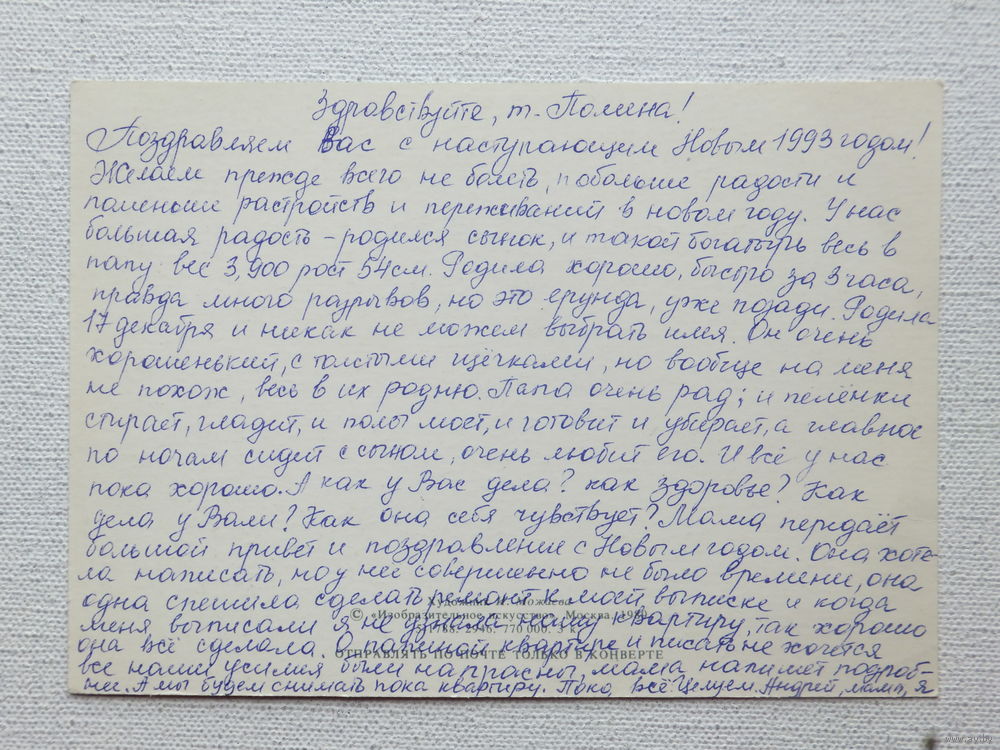 Здравствуйте, т. Полина!
Поздравляем Вас с наступающим Новым 1993 годом!
Желаем прежде всего не болеть, побольше радости и
поменьше растройств и переживаний в новом году. У нас
большая радость – родился сынок, и такой богатырь весь в
папу вес 3,900 рост 54 см. Родила хорошо, быстро за 3 часа,
правда много разрывов, но это ерунда, уже позади. Родила
17 декабря и никак не можем выбрать имя. Он очень
хорошенький, с толстыми щёчками, но вообще на меня
не похож, весь в их родню. Папа очень рад; и пелёнки
стирает, гладит, и полы моет, и готовит и убирает, а главное
по ночам сидит с сыном, очень любит его. И всё у нас
пока хорошо. А как у Вас дела? как здоровье? Как
дела у Вали? Как она себя чувствует? Мама передаёт
большой привет и поздравление с Новым годом. Она хоте-
ла написать, но у неё совершенно не было времени, она
одна спешила сделать ремонт к моей выписке и когда
Художник Можаева
© «Изобразительное искусство». Москва.
меня выписали я не узнала нашу квартиру, так хорошо
2946. 770 000. 3 к.
она всё сделала. О квартире и писать не хочется
ОТПРАВЛЯТЬ ПО ПОЧТЕ ТОЛЬКО В КОНВЕРТЕ
все наши усилия были напрасны, мама напишет подроб-
нее. А мы будем снимать пока квартиру. Пока всё Целуем. Андрей, мама, я
www.ay.by